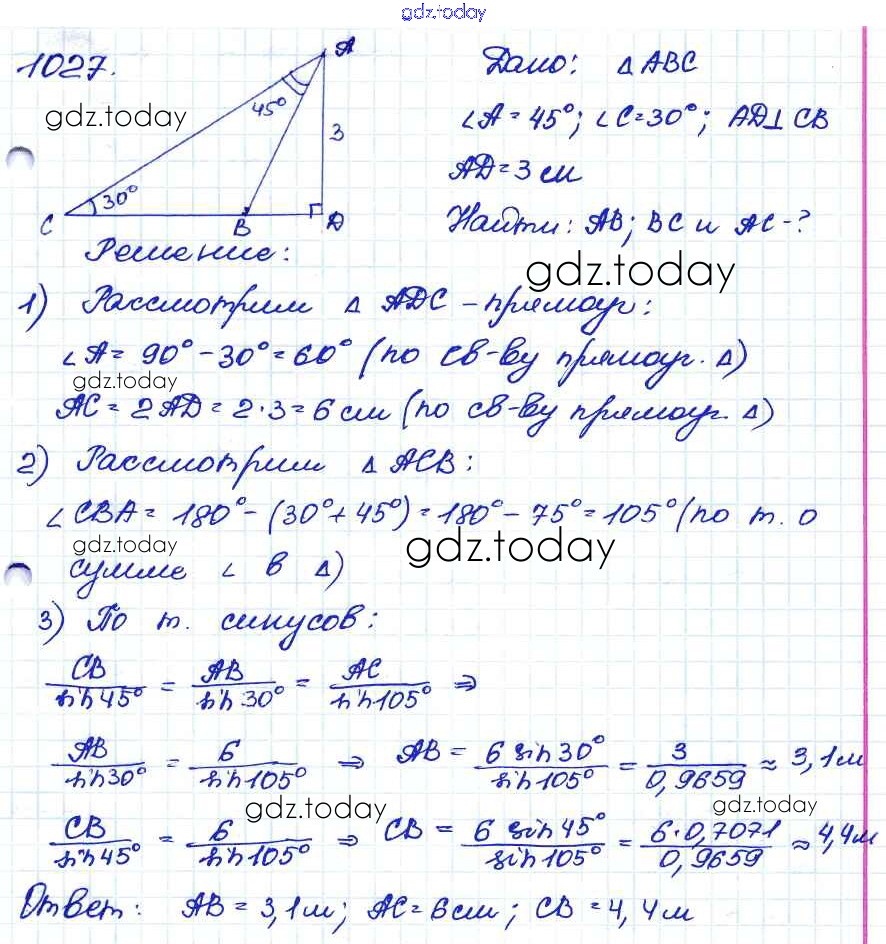 gdz.today
1027.
A
45°
3
30°
C
B
D
gdz.today
Дано: △ABC
∠A = 45°; ∠C = 30°; AD⊥CB
AD = 3 см
Найти: AB; BC и AC - ?
Решение:
gdz.today
1) Рассмотрим △ ADC - прямоуг:
∠A = 90° - 30° = 60° (по св-ву прямоуг. △)
gdz.today
AC = 2AD = 2·3 = 6 см (по св-ву прямоуг. △)
2) Рассмотрим △ ACB:
∠CBA = 180° - (30° + 45°) = 180° - 75° = 105° (по т. о
gdz.today
gdz.today
сумме ∠ в △)
3) По т. синусов:
CB / sin 45° = AB / sin 30° = AC / sin 105° ⇒
AB / sin 30° = 6 / sin 105° ⇒ AB = 6 sin 30° / sin 105° = 3 / 0,9659 ≈ 3,1 м
gdz.today
gdz.today
CB / sin 45° = 6 / sin 105° ⇒ CB = 6 sin 45° / sin 105° = 6·0,7071 / 0,9659 ≈ 4,4 м
Ответ: AB = 3,1 м; AC = 6 см; CB = 4,4 м